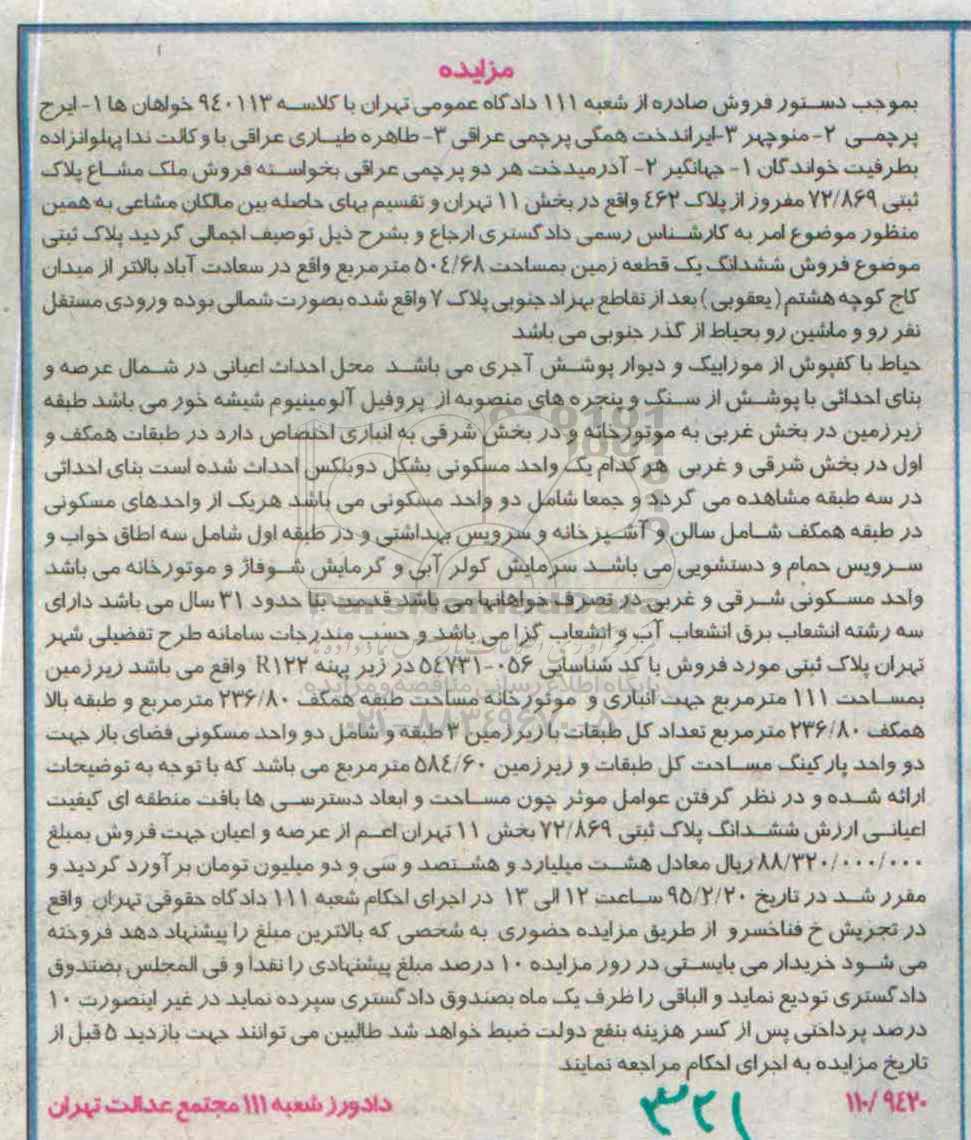 مزایده
بموجب دستور فروش صادره از شعبه ۱۱۱ دادگاه عمومی تهران با کلاسه ۹۴۰۱۱۳ خواهان ها ۱- ایرج
پرچمی ۲- منوچهر ۳-ایراندخت همگی پرچمی عراقی ۳- طاهره طیاری عراقی با وکالت ندا پهلوانزاده
بطرفیت خواندگان ۱- جهانگیر ۲- آدرمیدخت هر دو پرچمی عراقی بخواسته فروش ملک مشاع پلاک
ثبتی ۷۲/۸۶۹ مفروز از پلاک ۴۶۲ واقع در بخش ۱۱ تهران و تقسیم بهای حاصله بین مالکان مشاعی به همین
منظور موضوع امر به کارشناس رسمی دادگستری ارجاع و بشرح ذیل توصیف اجمالی گردید پلاک ثبتی
موضوع فروش ششدانگ یک قطعه زمین بمساحت ۵۰۴/۶۸ مترمربع واقع در سعادت آباد بالاتر از میدان
کاج کوچه هشتم (یعقوبی) بعد از تقاطع بهزاد جنوبی پلاک ۷ واقع شده بصورت شمالی بوده ورودی مستقل
نفر رو و ماشین رو بحیاط از گذر جنوبی می باشد
حیاط با کفپوش از موزاییک و دیوار پوشش آجری می باشد محل احداث اعیانی در شمال عرصه و
بنای احداثی با پوشش از سنگ و پنجره های منصوبه از پروفیل آلومینیوم شیشه خور می باشد طبقه
زیرزمین در بخش غربی به موتورخانه و در بخش شرقی به انباری اختصاص دارد در طبقات همکف و
اول در بخش شرقی و غربی هر کدام یک واحد مسکونی بشکل دوبلکس احداث شده است بنای احداثی
در سه طبقه مشاهده می گردد و جمعا شامل دو واحد مسکونی می باشد هریک از واحدهای مسکونی
در طبقه همکف شامل سالن و آشپزخانه و سرویس بهداشتی و در طبقه اول شامل سه اطاق خواب و
سرویس حمام و دستشویی می باشد سرمایش کولر آبی و گرمایش شوفاژ و موتورخانه می باشد
واحد مسکونی شرقی و غربی در تصرف خواهانها می باشد قدمت بنا حدود ۳۱ سال می باشد دارای
سه رشته انشعاب برق انشعاب آب و انشعاب گزا می باشد و حسب مندرجات سامانه طرح تفضیلی شهر
تهران پلاک ثبتی مورد فروش با کد شناسایی ۰۵۶-۵۴۷۳۱ در زیر پهنه R۱۲۲ واقع می باشد زیرزمین
بمساحت ۱۱۱ مترمربع جهت انباری و موتورخانه مساحت طبقه همکف ۲۳۶/۸۰ مترمربع و طبقه بالا
همکف ۲۳۶/۸۰ مترمربع تعداد کل طبقات با زیرزمین ۳ طبقه و شامل دو واحد مسکونی فضای باز جهت
دو واحد پارکینگ مساحت کل طبقات و زیرزمین ۵۸۴/۶۰ مترمربع می باشد که با توجه به توضیحات
ارائه شده و در نظر گرفتن عوامل موثر چون مساحت و ابعاد دسترسی ها بافت منطقه ای کیفیت
اعیانی ارزش ششدانگ پلاک ثبتی ۷۲/۸۶۹ بخش ۱۱ تهران اعم از عرصه و اعیان جهت فروش بمبلغ
۸۸/۳۲۰/۰۰۰/۰۰۰ ریال معادل هشت میلیارد و هشتصد و سی و دو میلیون تومان برآورد گردید و
مقرر شد در تاریخ ۹۵/۲/۲۰ ساعت ۱۲ الی ۱۳ در اجرای احکام شعبه ۱۱۱ دادگاه حقوقی تهران واقع
در تجریش خ فناخسرو از طریق مزایده حضوری به شخصی که بالاترین مبلغ را پیشنهاد دهد فروخته
می شود خریدار می بایستی در روز مزایده ۱۰ درصد مبلغ پیشنهادی را نقدا و فی المجلس بصندوق
دادگستری تودیع نماید و الباقی را ظرف یک ماه بصندوق دادگستری سپرده نماید در غیر اینصورت ۱۰
درصد پرداختی پس از کسر هزینه بنفع دولت ضبط خواهد شد طالبین می توانند جهت بازدید ۵ قبل از
تاریخ مزایده به اجرای احکام مراجعه نمایند
۱۱۰/۹۴۲۰ دادورز شعبه ۱۱۱ مجتمع عدالت تهران
۳۲۱